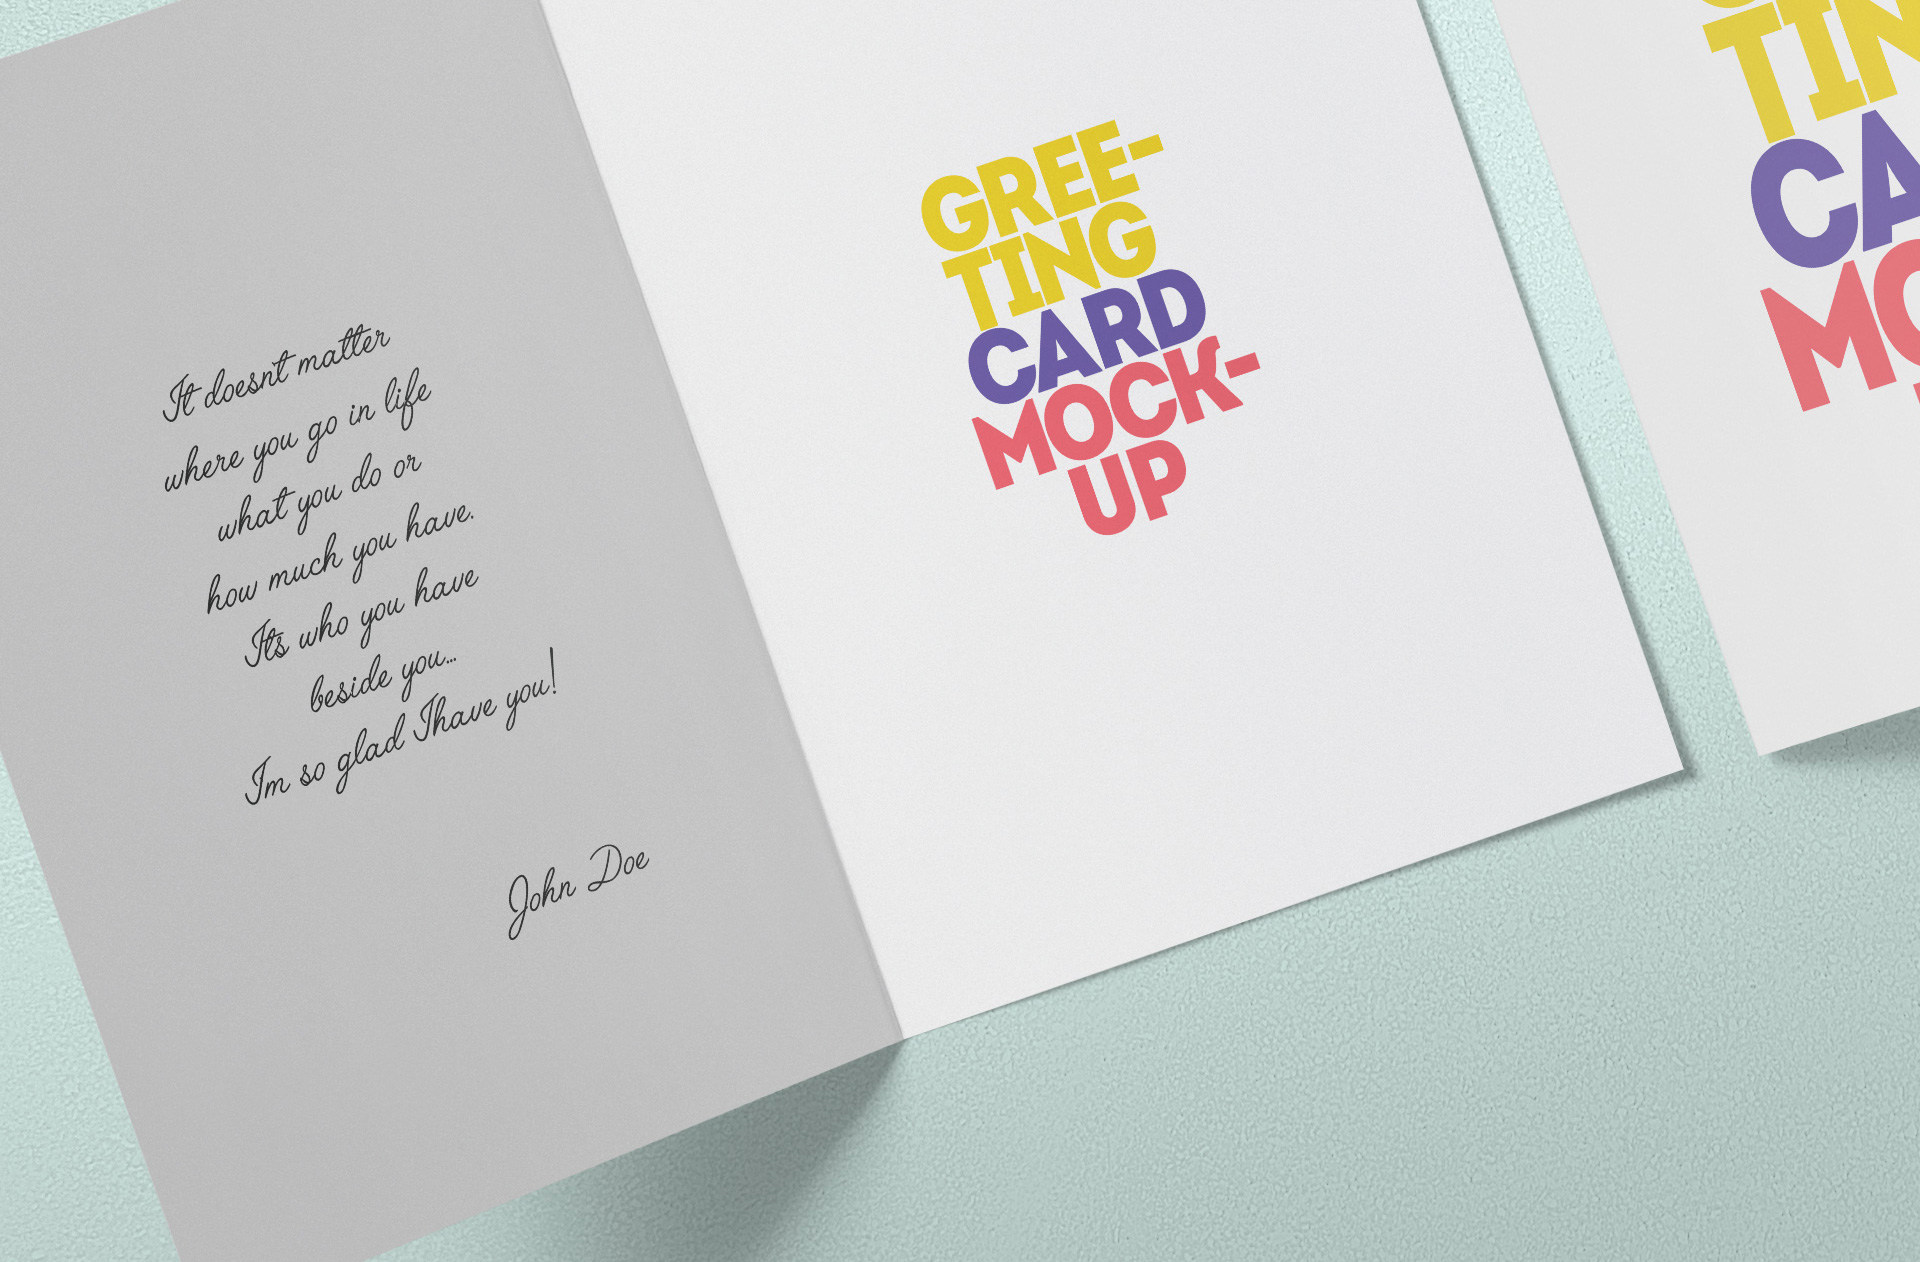 It doesnt matter
where you go in life
what you do or
how much you have.
Its who you have
beside you...
Im so glad I have you!
John Doe
GREE-
TING
CARD
MOCK-
UP
TIN
CA
MO